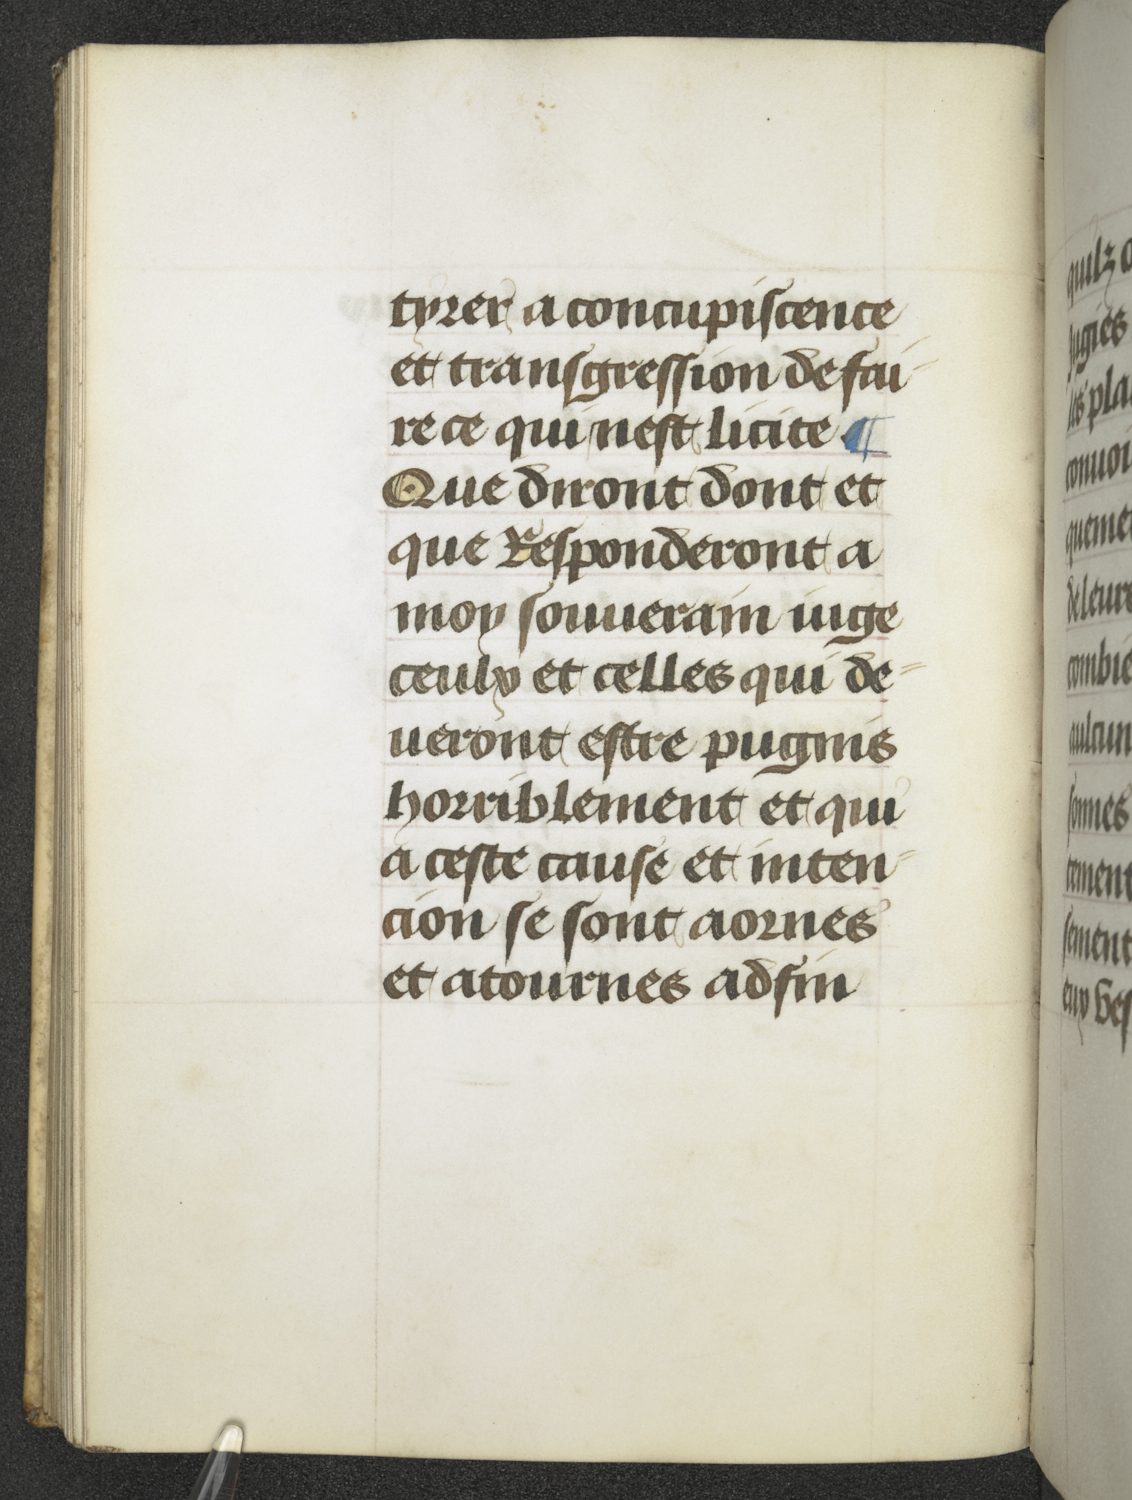 tyrer a concupiscence
et transgression de fai-
re ce qui nest licite ¶
Que diront dont et
que Responderont a
moy souuerain iuige
ceulx et celles qui de-
ueront estre pugnis
horriblement et qui
a ceste cause et inten-
cion se sont aornes
et atournes adfin
quilz
iugies
les pla
conuoi
quemet
de leurs
combie
aulcun
sonnes
tement
sement
eux